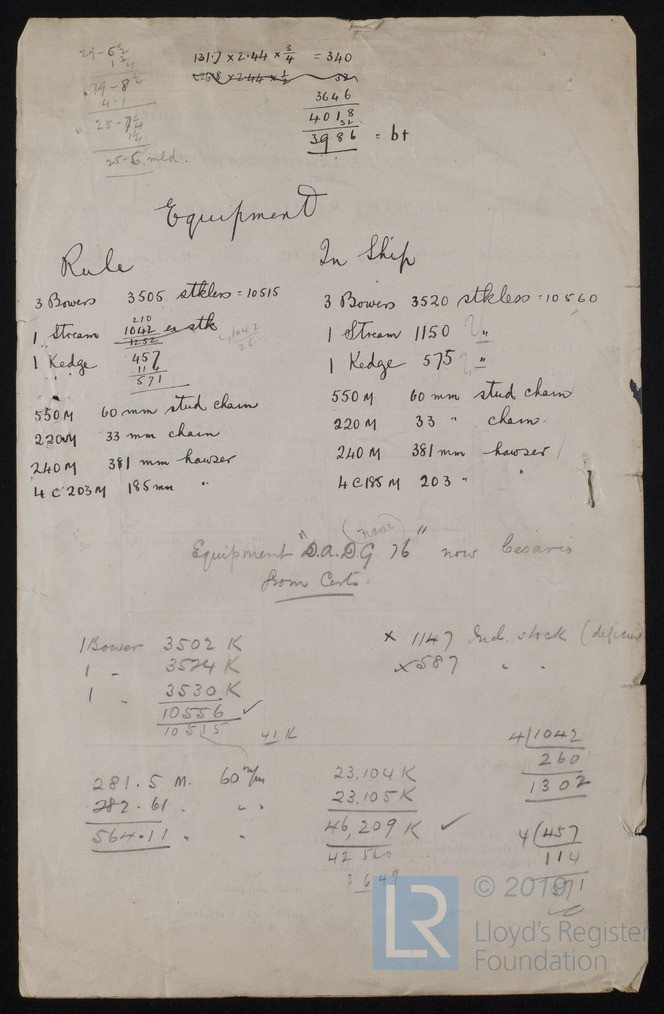 29-6½
29-8
4-1
25-7
25-6 mld.
131.7 x 2.44 x ¾ = 340
3646
4018
32
3986 = bt
Equipment
Rule
3 Bowers 3505 stkless = 10515
210
1 Stream 1042 ex stk
1252
1042
26
1 Kedge 457
114
571
550 M 60 mm stud chain
220 M 33 mm chain
240 M 381 mm hawser
4 @ 203 M 185 mm "
In Ship
3 Bowers 3520 stkless = 10560
1 Stream 1150 "
1 Kedge 575 "
550 M 60 mm stud chain
220 M 33 " chain
240 M 381 mm hawser
4 @ 185 M 203 " "
(name)
Equipment "D.A.D.G 76" now Cesaris
from Certs.
1 Bower 3502 K
1 - 3524 K
1 - 3530 K
10556 ✓
10515
41 K
x 1147 Incl. stock
x 587 " "
281.5 M. 60 m/m
282.61 " "
564.11 " "
23.104 K
23.105 K
46,209 K ✓
42 560
3 649
4/1042
260
1302
4/457
114
571
LR
© 2019
Lloyd's Register
Foundation